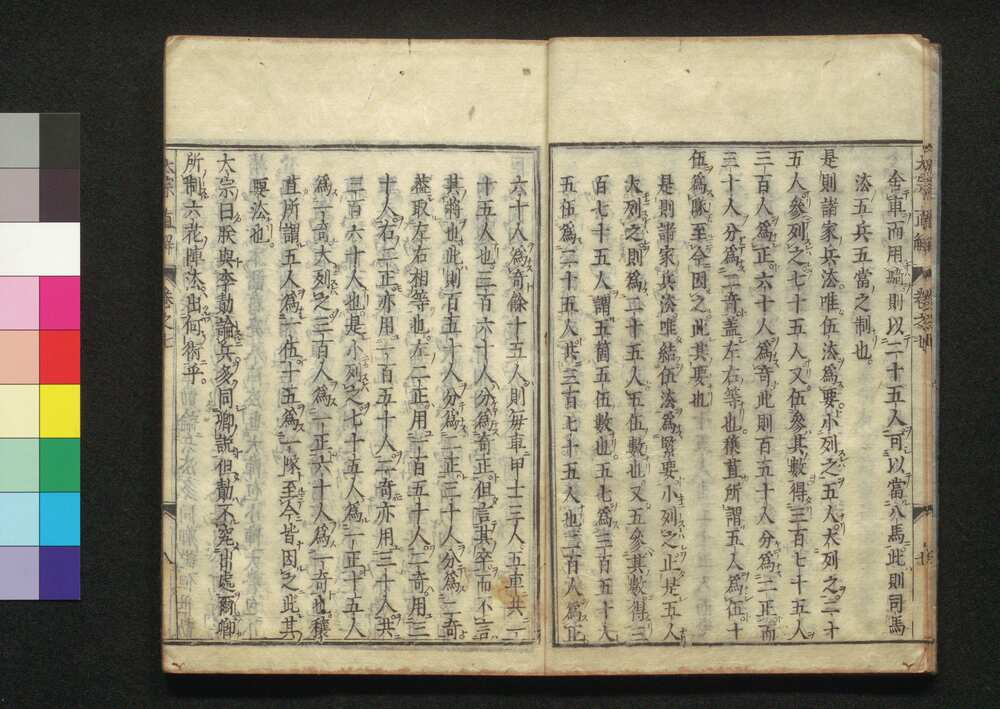 舍車而用騎則以二十五人可以當八馬此則司馬
法五兵五當之制也
是則諸家兵法唯伍法爲要小列之五人大列之二十
五人參列之七十五人又伍參其數得三百七十五人
三百人爲正六十人爲奇此則百五十人分爲二正而
三十人分爲二奇蓋左右等也穰苴所謂五人爲伍十
伍爲隊至今因之此其要也
是則諸家兵法唯結伍法爲緊要小列之止是五人
大列之則爲二十五人五伍數也又五參其數得三
百七十五人謂五箇五伍數也五七爲三百五十人
五伍爲二十五人共三百七十五人也三百人爲正
六十人爲奇餘十五人則每車甲士三人五車共一
十五人也三百六十人分爲奇正但言其卒而不言
其將也此則百五十人分爲二正三十人分爲二奇
蓋取左右相等也左二正用一百五十人二奇用三
十人右二正亦用一百五十人二奇亦用三十人共
三百六十人也是小列之七十五人爲一正十五人
爲一奇大列之三百人爲一正六十人爲一奇也穰
苴所謂五人爲一伍十五爲一隊至今皆因之此其
要法也
太宗曰朕與李勣論兵多同卿説但勣不究出處爾卿
所制六花陣法出何術乎
直解 卷之七 八